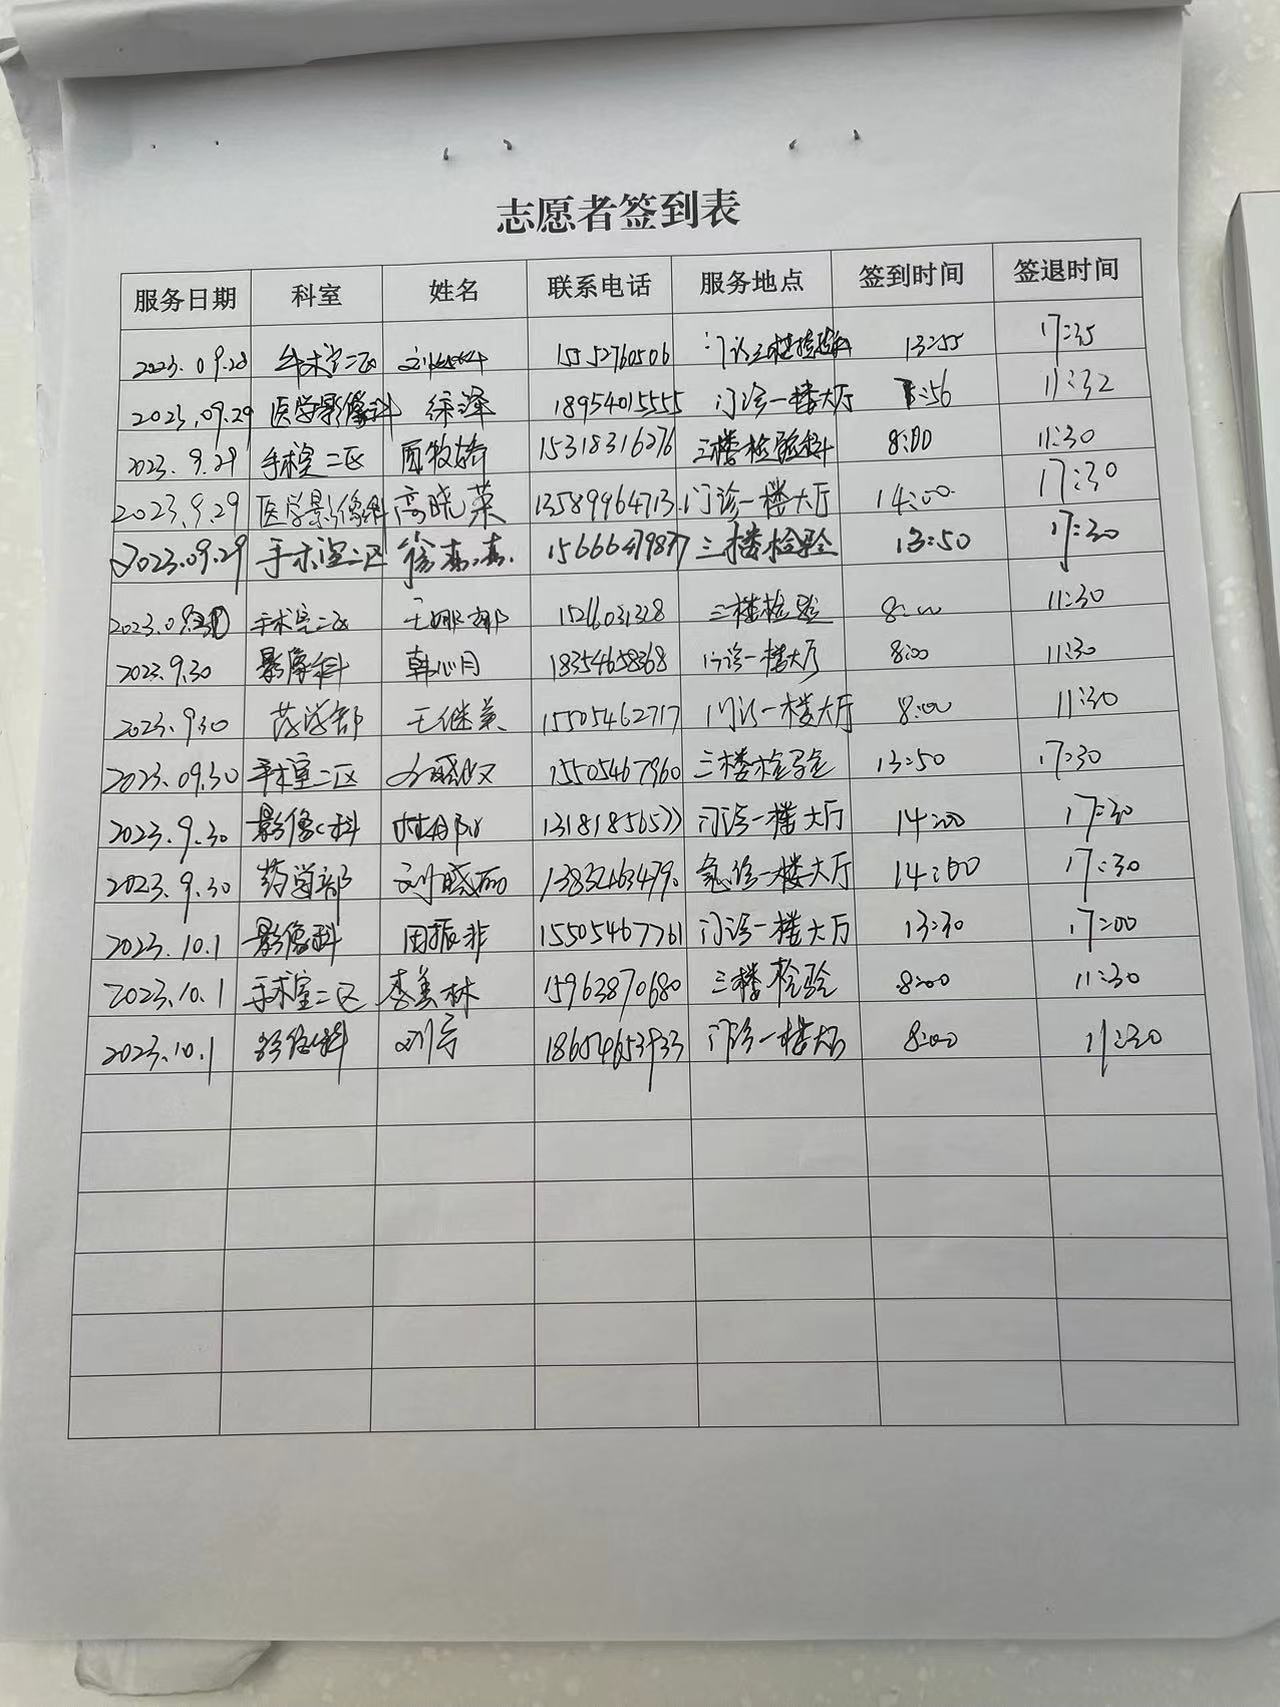 志愿者签到表
服务日期 科室 姓名 联系电话 服务地点 签到时间 签退时间
2023.09.28 手术室二区 15552760506 门诊三楼检验科 13:55 17:35
2023.09.29 医学影像科 徐泽 18954015555 门诊一楼大厅 :56 11:32
2023.9.29 手术室二区 周牧娇 15318316276 三楼检验科 8:00 11:30
2023.9.29 医学影像科 高晓荣 13589964713 门诊一楼大厅 14:00 17:30
2023.09.29 手术室二区 徐森森 15666479877 三楼检验 13:50 17:30
2023.09.30 手术室二区 王娜娜 三楼检验 8:00 11:30
2023.9.30 影像科 韩心月 18354658368 门诊一楼大厅 8:00 11:30
2023.9.30 药学部 王继美 15505462717 门诊一楼大厅 8:00 11:30
2023.09.30 手术室二区 15505467960 三楼检验 13:50 17:30
2023.9.30 影像科 13181856577 门诊一楼大厅 14:00 17:30
2023.9.30 药学部 刘晓丽 急诊一楼大厅 14:00 17:30
2023.10.1 影像科 田振非 15505467761 门诊一楼大厅 13:30 17:00
2023.10.1 手术室二区 李美林 15963870680 三楼检验 8:00 11:30
2023.10.1 影像科 刘宁 18654653933 门诊一楼大厅 8:00 11:30